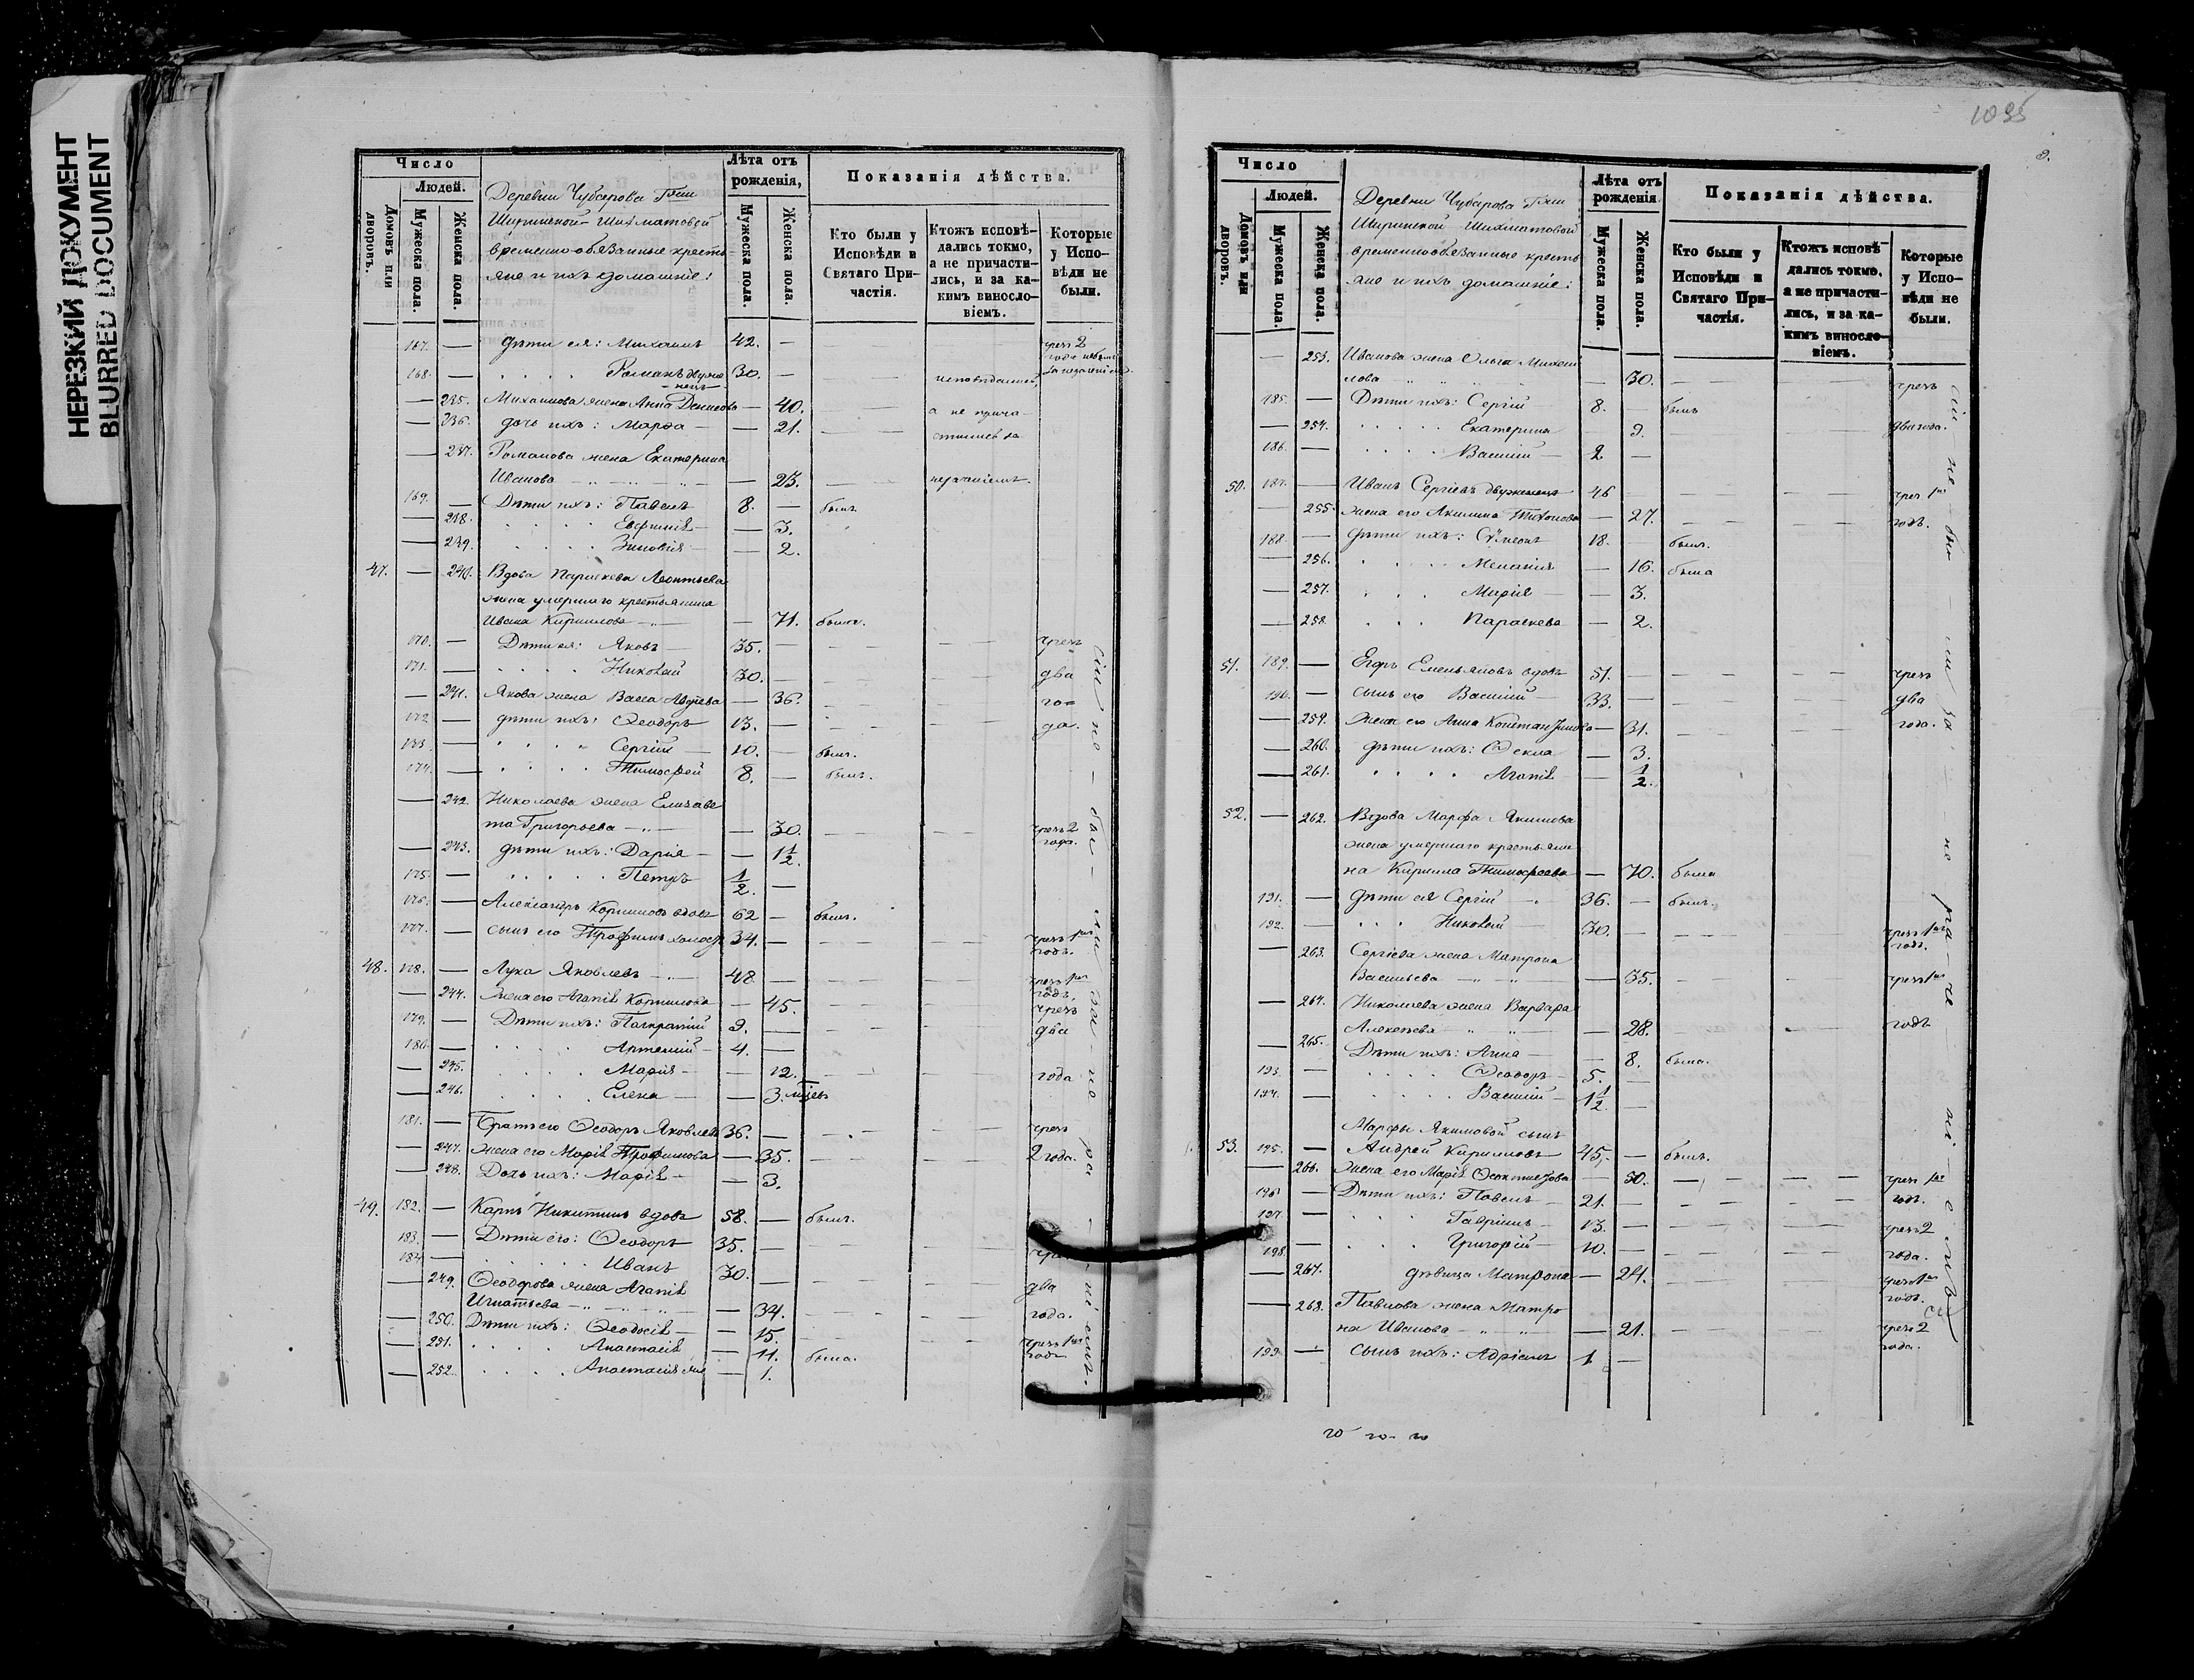 НЕРЕЗКИЙ ДОКУМЕНТ
BLURRED DOCUMENT
Число
Людей.
Домовъ или дворовъ.
Мужеска пола.
Женска пола.
Деревни Чубарова Гжи
Ширинской-Шихматовой
временнообязанные кресть
яне и ихъ домашніе:
Лѣта отъ рожденія,
Мужеска пола.
Женска пола.
Показанія дѣйства.
Кто были у Исповѣди и Святаго Причастія.
Ктожъ исповѣдались токмо, а не причастились, и за какимъ винословіемъ.
Которые у Исповѣди не были.
167. — дѣти ея: Михаилъ 42. — чрезъ 2
168. — Романъ двуже- 30. —
нецъ
— 235. Михаилова жена Анна Денисова — 40. а не прича-
— 236. дочь ихъ: Марѳа — 21. стились за
— 237. Романова жена Екатерина
Иванова — 23. нераченіемъ.
169. — Дѣти ихъ: Павелъ 8. — былъ
— 238. Евфимія — 3.
— 239. Зиновія — 2.
47. — 240. Вдова Параскева Леонтьева
жена умершаго крестьянина
Ивана Кириллова — 71. была.
170. — Дѣти ея: Яковъ 35. — чрезъ
171. — Николай 30. — два
— 241. Якова жена Васса Авдіева — 36. го=
172. — дѣти ихъ: Ѳеодоръ 13. — да.
173. — Сергій 10. — былъ.
174. — Тимоѳей 8. — былъ.
— 242. Николаева жена Елизаве
та Григорьева — 30. чрезъ 2
года.
— 243. дѣти ихъ: Дарія — 1 1/2.
175. — Петръ 1/2. —
176. — Александръ Корниловъ вдовъ 62 — былъ.
177. — сынъ его Трофимъ холостъ 34. — чрезъ 1нъ
годъ.
48. 178. — Лука Яковлевъ 48 чрезъ 1нъ
годъ,
— 244. Жена его Агапія Корнилова — 45. чрезъ
179. — Дѣти ихъ: Панкратій 9. — два
180. — Артемій 4. —
— 245. Марія — 12. года
— 246. Елена — 3.
181. — Братъ его Ѳеодоръ Яковлевъ 36. — чрезъ
— 247. жена его Марія Трофимова — 35. 2 года.
— 248. Дочь ихъ: Марія — 3.
49. 182. — Карпъ Никитинъ вдовъ 58. — былъ.
183. — Дѣти его: Ѳеодоръ 35. —
184 — Иванъ 30. —
— 249. Ѳеодорова жена Агапія два
Игнатьева — 34. года.
— 250. Дѣти ихъ: Ѳеодосія — 15. чрезъ 1нъ
— 251. Анастасія — 11. была. годъ
— 252. Анастасія — 1.
сіи не — бы — ли за не ра —
1095
Число
Людей.
Домовъ или дворовъ.
Мужеска пола.
Женска пола.
Деревни Чубарова Гжи
Ширинской Шихматовой
временнообязанные кресть
яне и ихъ домашніе:
Лѣта отъ рожденія
Мужеска пола.
Женска пола.
Показанія дѣйства.
Кто были у Исповѣди и Святаго Причастія.
Ктожъ исповѣдались токмо, а не причастились, и за какимъ винословіемъ.
Которые у Исповѣди не были.
— 253. Иванова жена Ольга Михаи
лова — 30. чрезъ
185. — Дѣти ихъ: Сергій 8. — былъ
— 254. Екатерина 9. два года.
186. — Василій 2 —
50. 187. — Иванъ Сергіевъ двуженецъ 46 чрез 1нъ
— 255. жена его Акилина Тихонова — 27. годъ.
188. — дѣти ихъ: Сѵмеонъ 18. — былъ.
— 256. Меланія — 16. была
— 257. Марія — 3.
— 258. Параскева — 2.
51. 189. — Егоръ Емельяновъ вдовъ 51. — чрезъ
190. — сынъ его Василій 33. — два
— 259. Жена его Анна Константинова — 31. года.
— 260. дѣти ихъ: Ѳекла — 3.
— 261. Агапія — 1/2.
52. — 262. Вдова Марѳа Якимова
жена умершаго крестьяни
на Кирилла Тимоѳеева — 70. была
191. — дѣти ея Сергій 36. — былъ.
192. — Николай 30. — чрезъ 1нъ
годъ.
— 263. Сергіева жена Матрона
Васильева — 35. чрезъ 1нъ
— 264. Николаева жена Варвара
Алексѣева — 28. годъ
— 265. Дѣти ихъ: Анна — 8. была.
193. — Ѳеодоръ 5. —
194. — Василій 1 1/2 —
Марѳы Якимовой сынъ
53. 195. — Андрей Кирилловъ 45. — былъ.
— 266. Жена его Марія Ѳеоктистова — 50. чрезъ 1нъ
196 — Дѣти ихъ: Павелъ 21. — годъ.
197. — Гавріилъ 13. — чрезъ 2
198. — Григорій 10. — года.
— 267. дѣвица Матрона — 24. чрезъ 1нъ
годъ.
— 268. Павлова жена Матро
на Иванова — 21. чрезъ 2
199. — сынъ ихъ: Адріанъ 1 — года.
сіи не бы — ли за — не ра — че — ні — е мъ